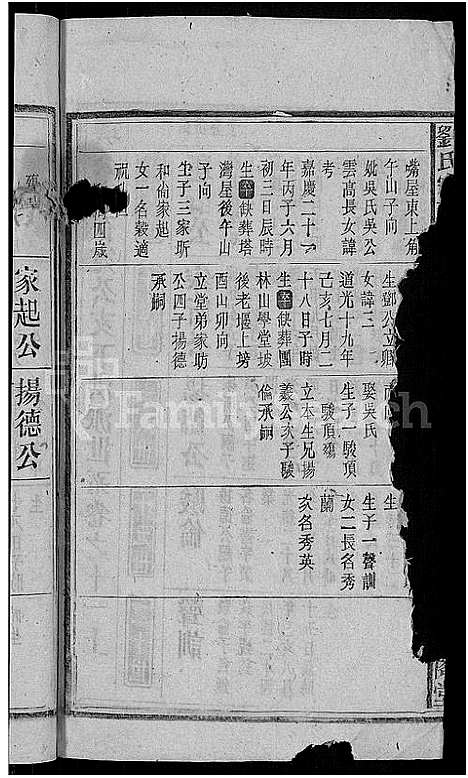 劉氏
嘴屋東上角
午山子向
妣吳氏吳公
雲高長女諱
嘉慶二十一
年丙子六月
初三日辰時
生卒缺葬塔
灣屋後午山
子向
生子三家昕
和倫家起
女一名穀適
祝
四歳
生鄧公立卿
女諱三
道光十九年
己亥七月二
十八日子時
生卒缺葬團
林山學堂坡
後老堰上塝
酉山卯向
立堂弟家昉
公四子揚德
承嗣
娶吳氏
生子一駿頂
駿頂殤
立本生兄揚
義公次子駿
倫承嗣
生
生子一聲訓
女二長名秀
蘭
次名秀英
家起公
揚德公
FamilySearch